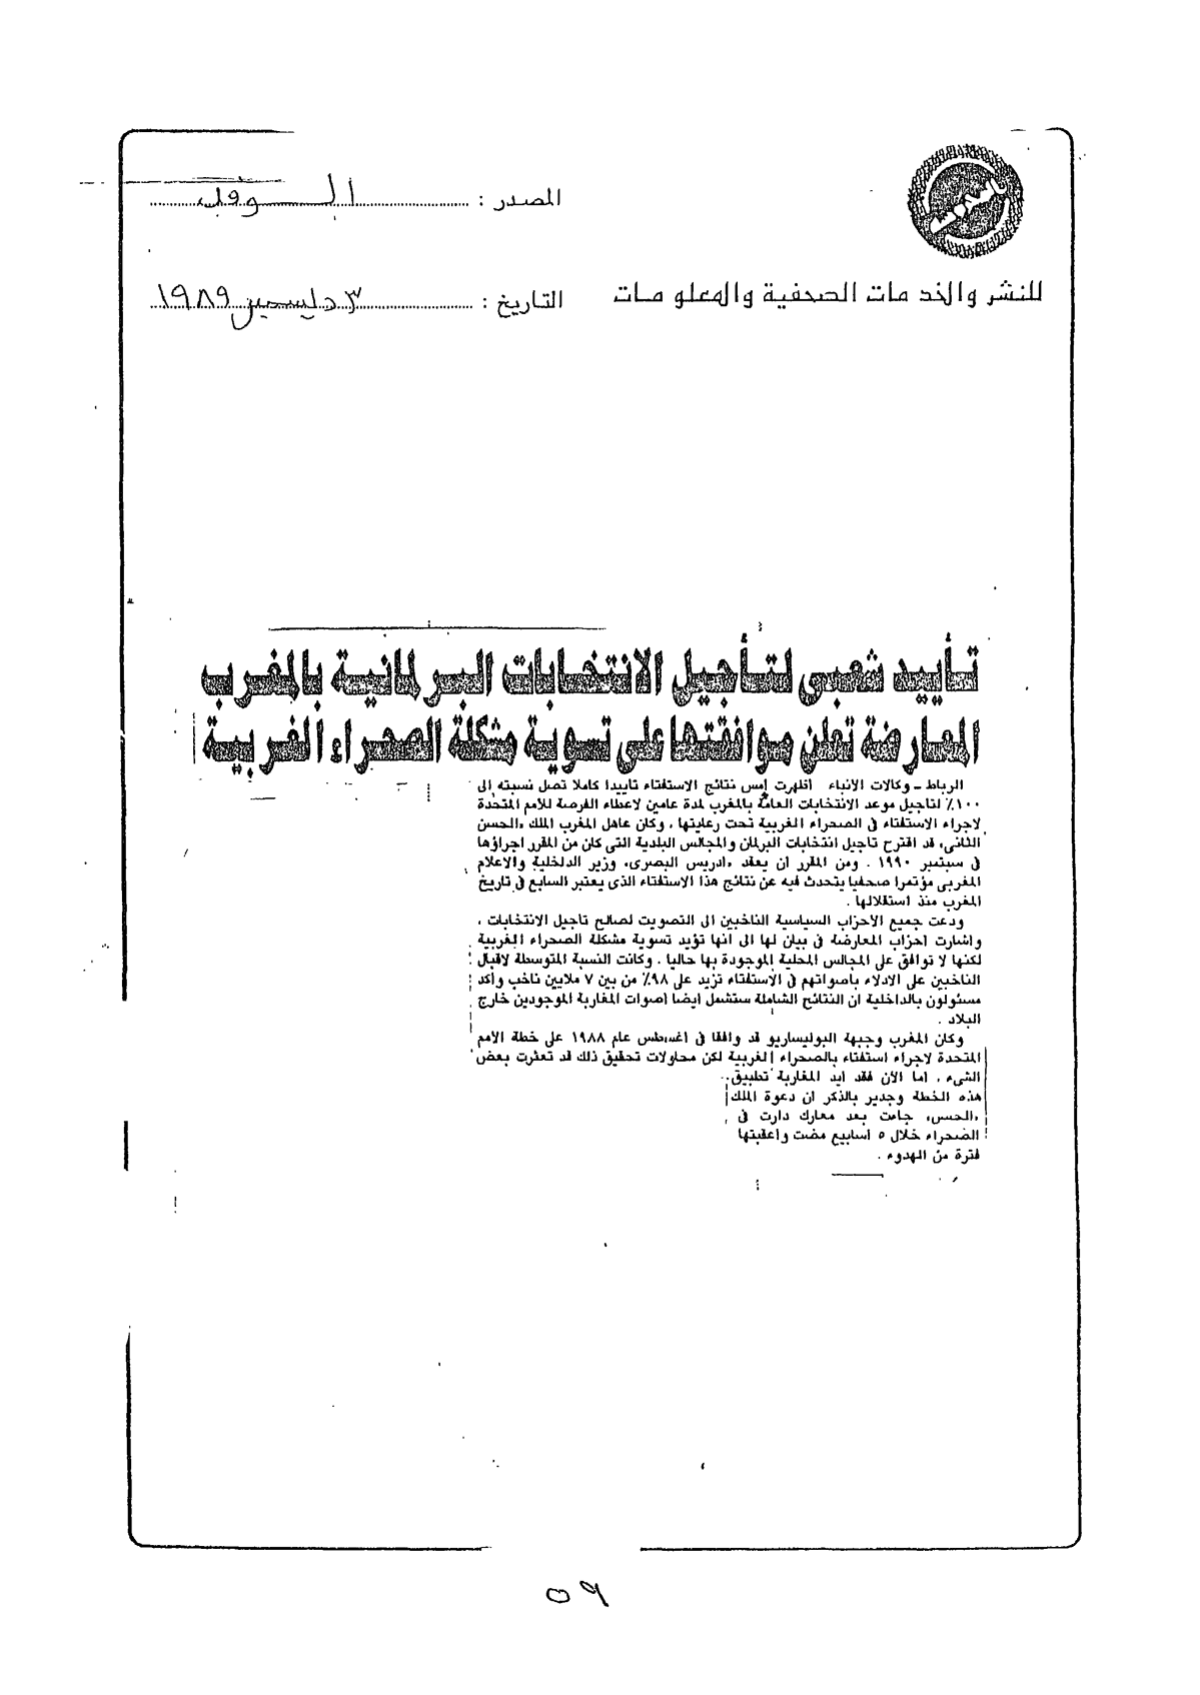 المصدر : الوفد
للنشر والخدمات الصحفية والمعلومات
التاريخ : ٣ ديسمبر ١٩٨٩
تأييد شعبى لتأجيل الانتخابات البرلمانية بالمغرب
المعارضة تعلن موافقتها على تسوية مشكلة الصحراء الغربية
الرباط - وكالات الأنباء اظهرت أمس نتائج الاستفتاء تاييدا كاملا تصل نسبته إلى
١٠٠٪ لتاجيل موعد الانتخابات العامة بالمغرب لمدة عامين لاعطاء الفرصة للأمم المتحدة
لاجراء الاستفتاء فى الصحراء الغربية تحت رعايتها . وكان عاهل المغرب الملك «الحسن
الثانى» قد اقترح تاجيل انتخابات البرلمان والمجالس البلدية التى كان من المقرر اجراؤها
فى سبتمبر ١٩٩٠ . ومن المقرر ان يعقد «ادريس البصرى» وزير الداخلية والاعلام
المغربى مؤتمرا صحفيا يتحدث فيه عن نتائج هذا الاستفتاء الذى يعتبر السابع فى تاريخ
المغرب منذ استقلالها .
ودعت جميع الاحزاب السياسية الناخبين الى التصويت لصالح تاجيل الانتخابات .
واشارت احزاب المعارضة فى بيان لها الى انها تؤيد تسوية مشكلة الصحراء الغربية
لكنها لا توافق على المجالس المحلية الموجودة بها حاليا . وكانت النسبة المتوسطة لاقبال
الناخبين على الادلاء بأصواتهم فى الاستفتاء تزيد على ٩٨٪ من بين ٧ ملايين ناخب وأكد
مسئولون بالداخلية ان النتائج الشاملة ستشمل ايضا اصوات المغاربة الموجودين خارج
البلاد .
وكان المغرب وجبهة البوليساريو قد وافقا فى اغسطس عام ١٩٨٨ على خطة الأمم
المتحدة لاجراء استفتاء بالصحراء الغربية لكن محاولات تحقيق ذلك قد تعثرت بعض
الشىء . اما الآن فقد ايد المغاربة تطبيق
هذه الخطة وجدير بالذكر ان دعوة الملك
«الحسن» جاءت بعد معارك دارت فى
الصحراء خلال ٥ اسابيع مضت واعقبتها
فترة من الهدوء .
٥٩